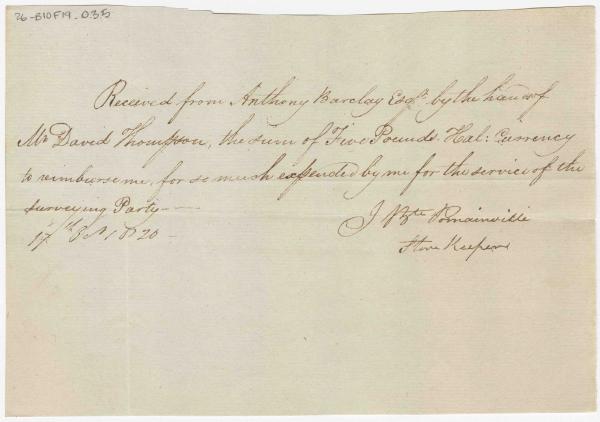 26-B10F19-035
Received from Anthony Barclay Esqr. by the hand of
Mr David Thompson, the sum of Five Pounds Hal: Currency
to reimburse me, for so much expended by me for the service of the
surveying Party
17th Oct 1820
J Bte Pomainville
Store Keeper